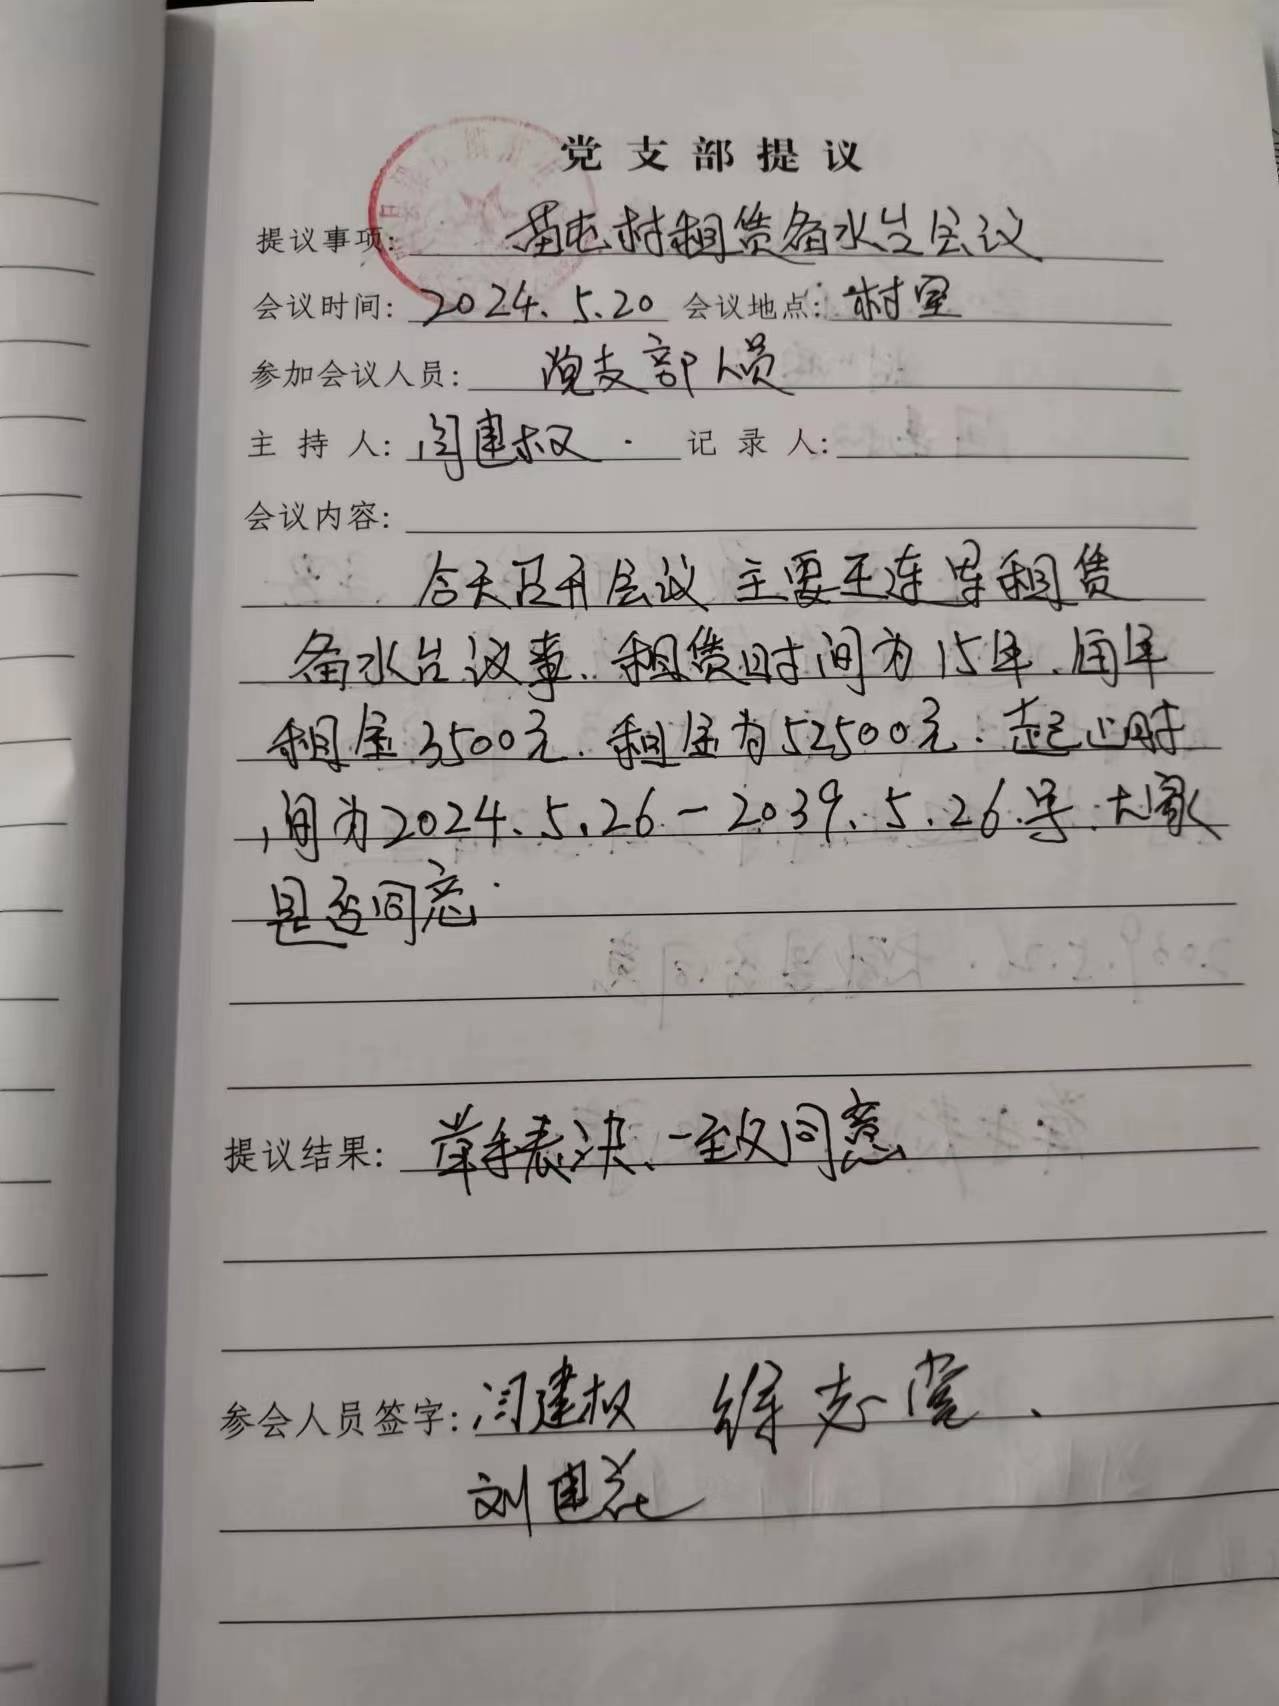 党支部提议
提议事项: 苗庄村租赁备水台会议
会议时间: 2024.5.20 会议地点: 村室
参加会议人员: 党支部人员
主持人: 闫建权 记录人:
会议内容:
今天召开会议 主要王连军租赁
备水台议事、租赁时间为15年、每年
租金3500元、租金为52500元. 起止时
间为2024.5.26-2039.5.26号.大家
是否同意.
提议结果: 举手表决、一致同意
参会人员签字: 闫建权 徐志党、
刘建花